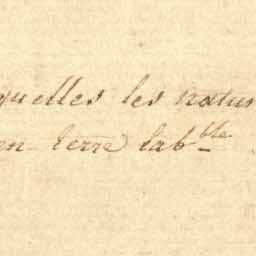 quelles les natur
en terre lab^ble